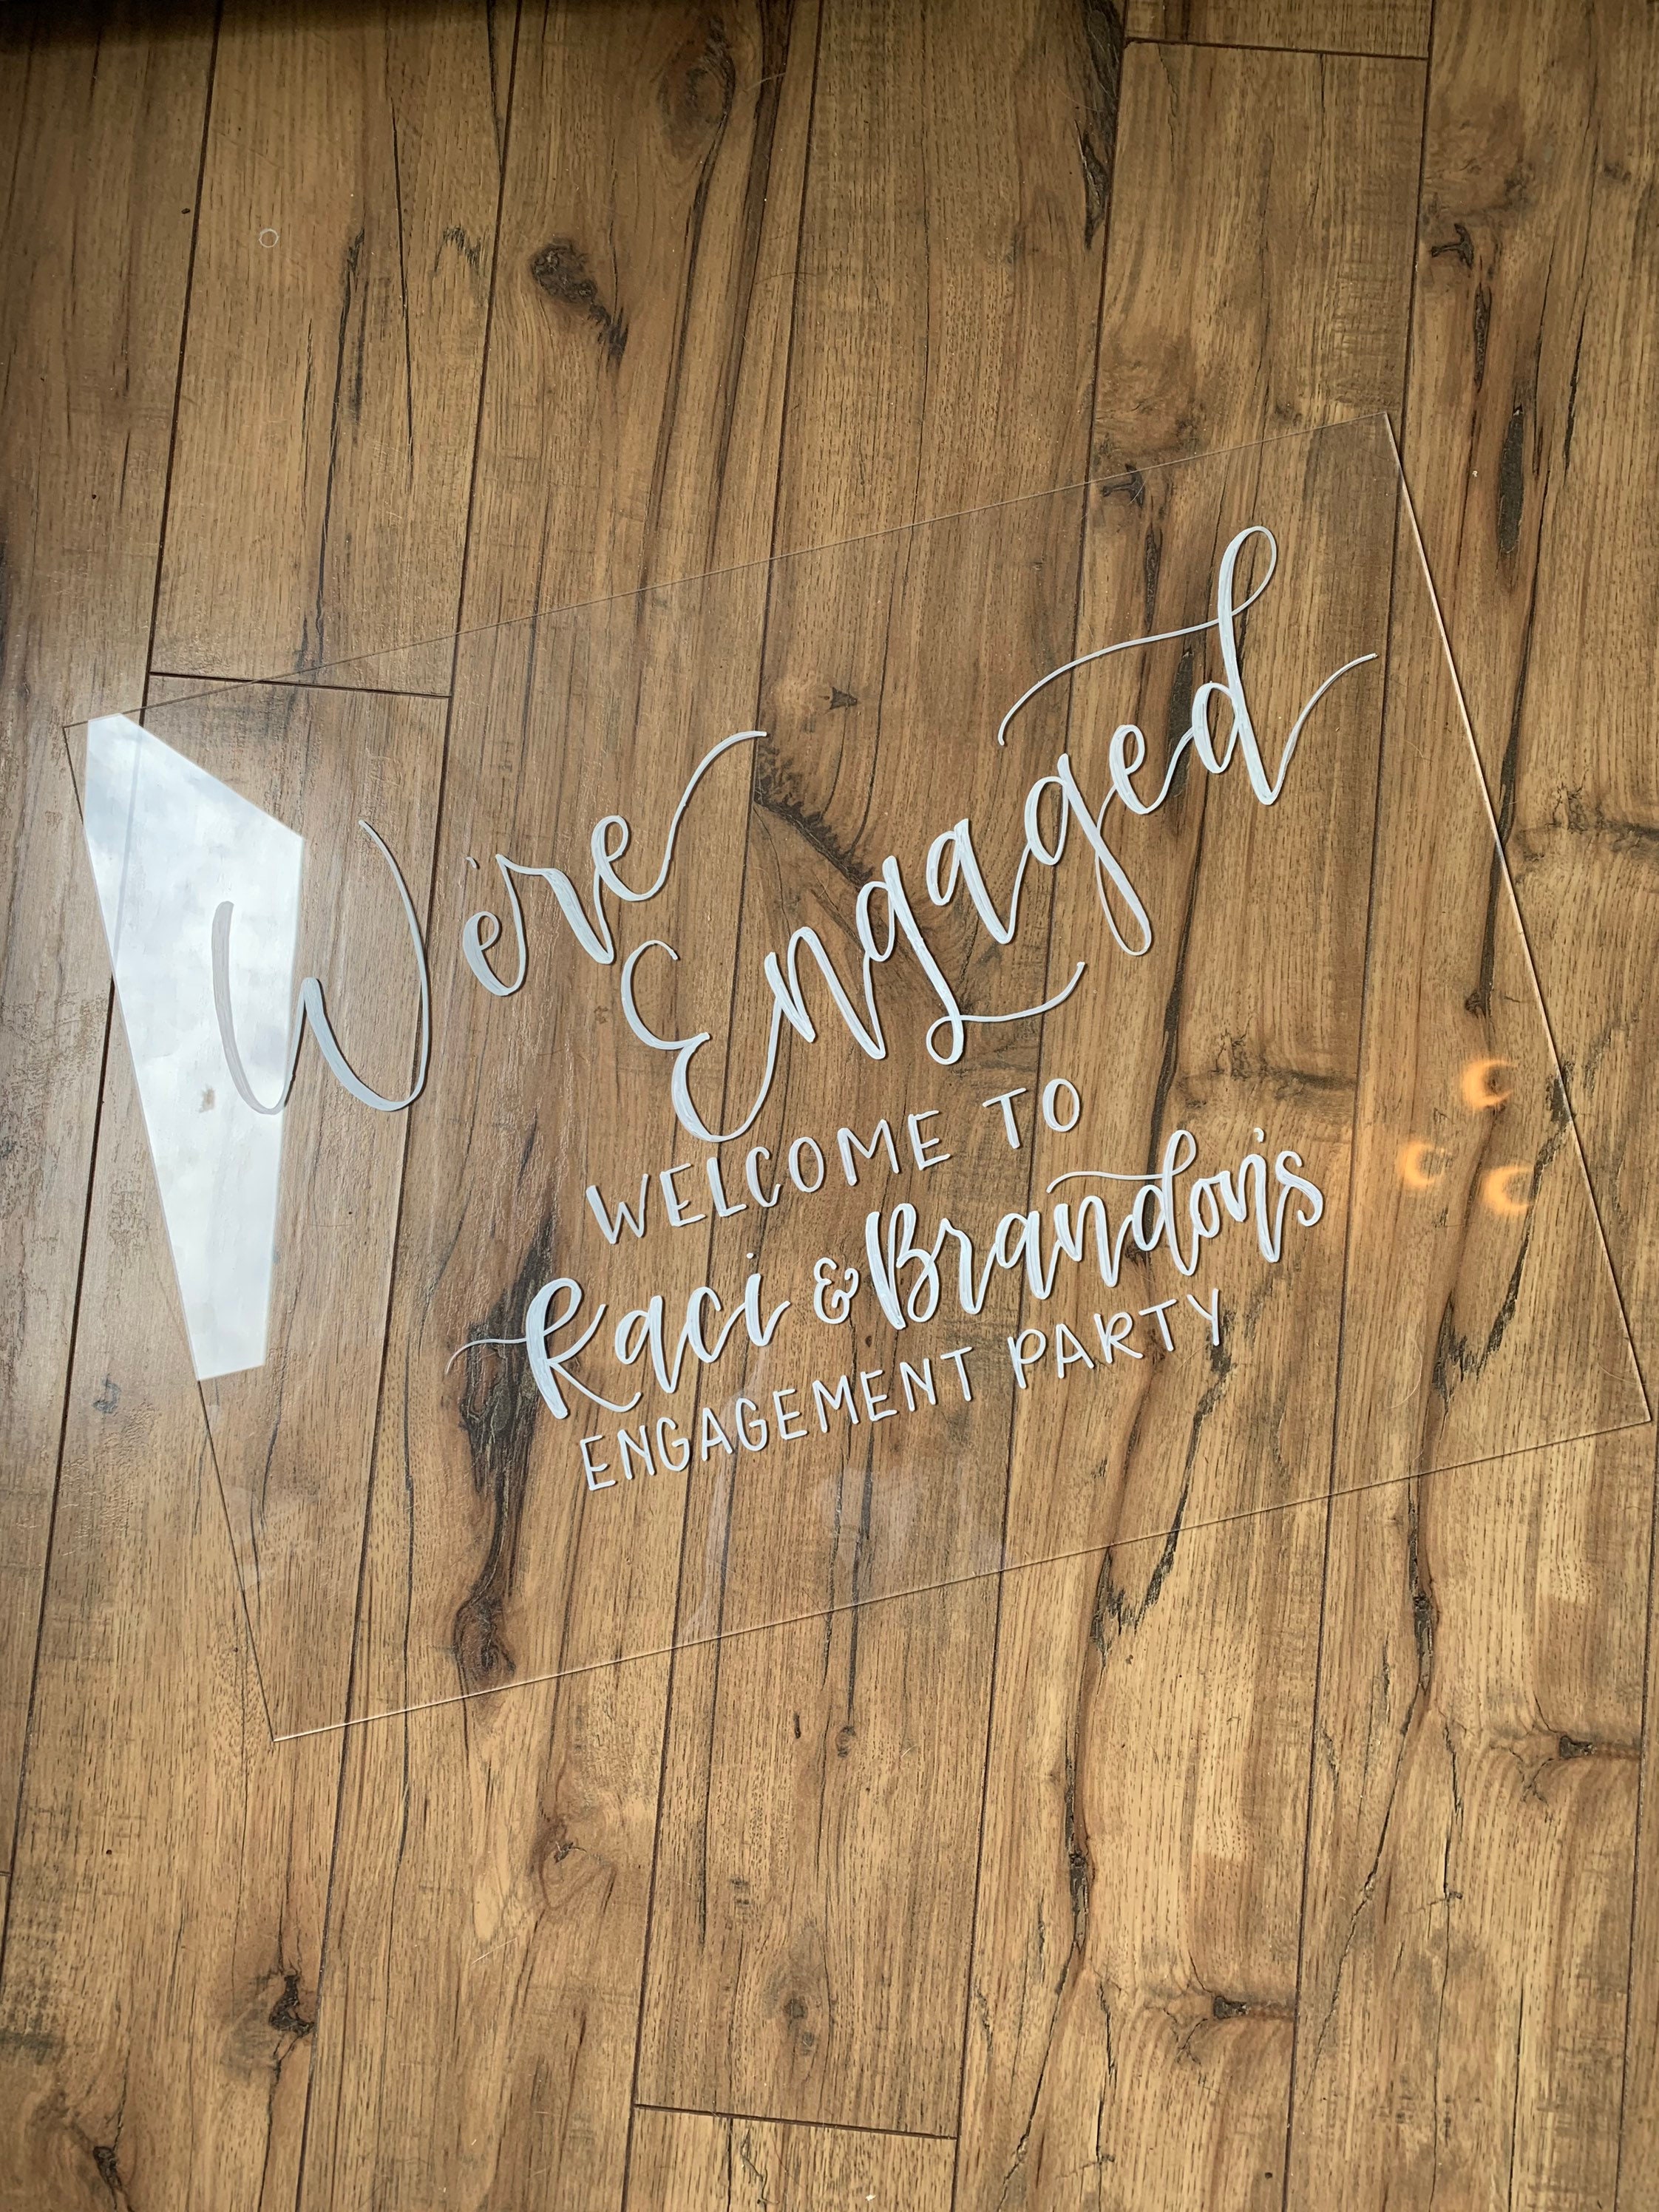 We're
Engaged
WELCOME TO
Raci & Brandon's
ENGAGEMENT PARTY